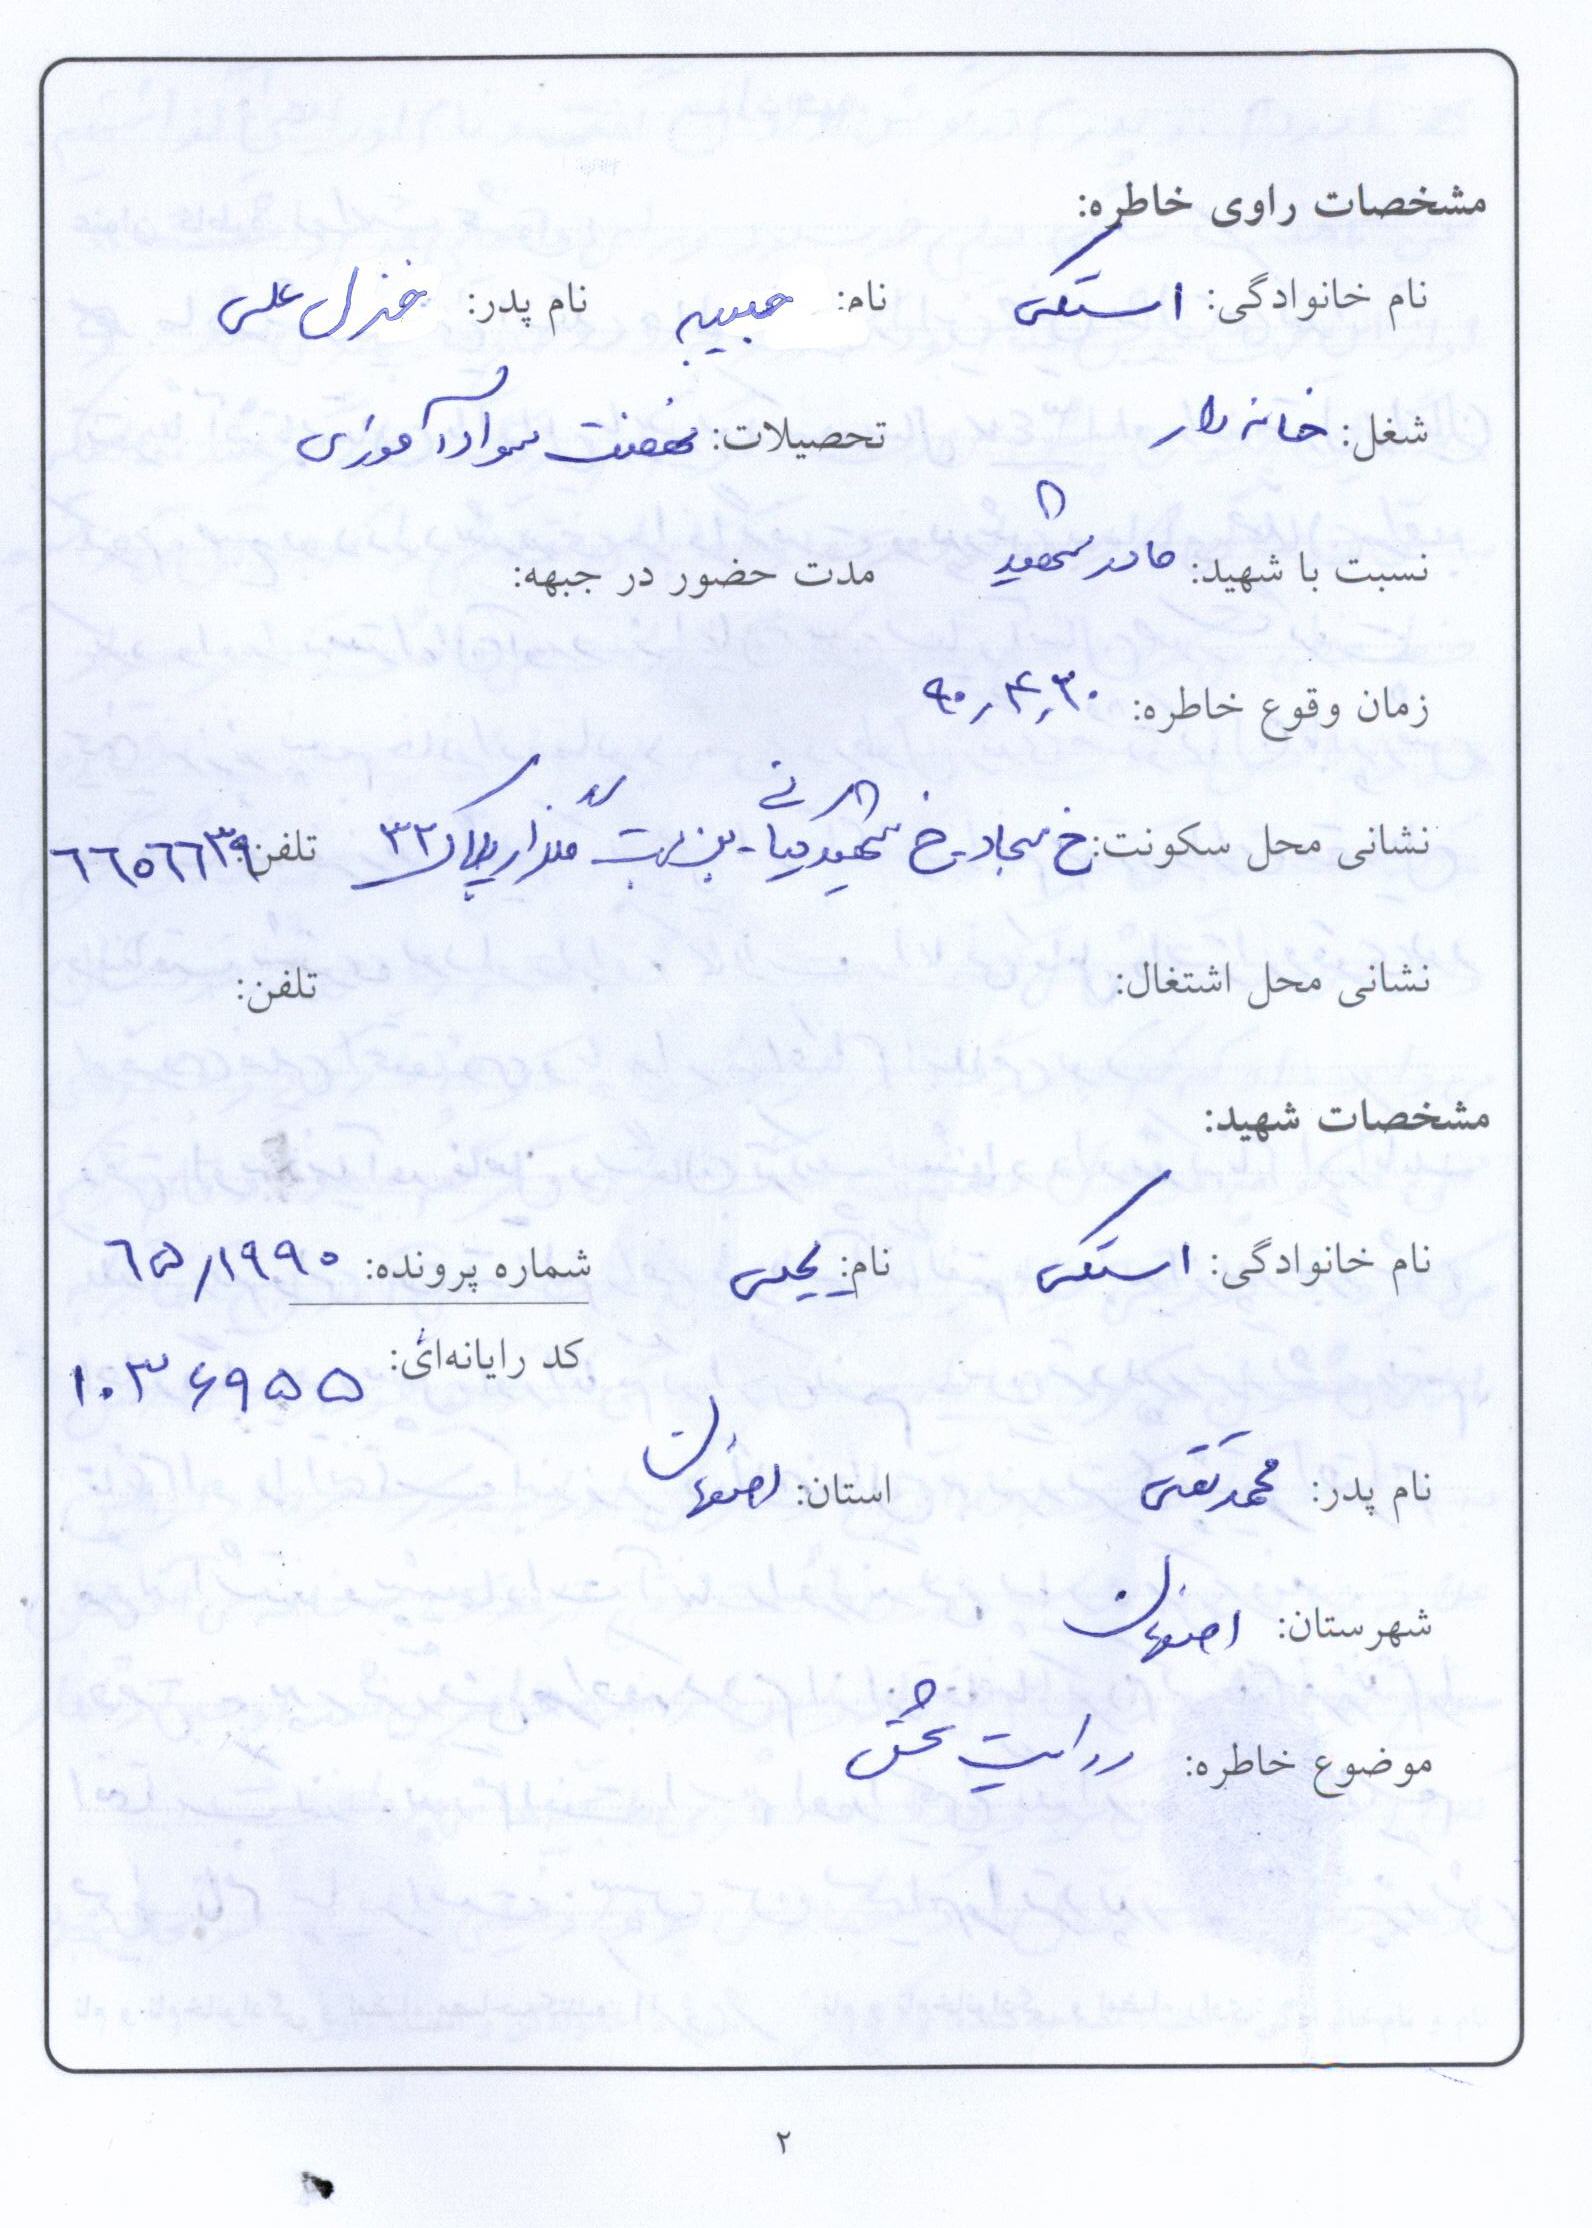 مشخصات راوی خاطره:
نام خانوادگی: استکی نام: حبیبه نام پدر: خزل علی
شغل: خانه دار تحصیلات: نهضت سوادآموزی
نسبت با شهید: مادر شهید مدت حضور در جبهه:
زمان وقوع خاطره: ۹۰٫۴٫۳۰
نشانی محل سکونت: خ سجاد - خ شهید میثا - بن بست پلاک ۳۲ تلفن: ۶۶۵۶۶۳۹
نشانی محل اشتغال: تلفن:
مشخصات شهید:
نام خانوادگی: استکی نام: یحیی شماره پرونده: ۶۵/۱۹۹۰
کد رایانه‌ای: ۱۰۳۶۹۵۵
نام پدر: محمدتقی استان: اصفهان
شهرستان: اصفهان
موضوع خاطره: روایت عشق
۲